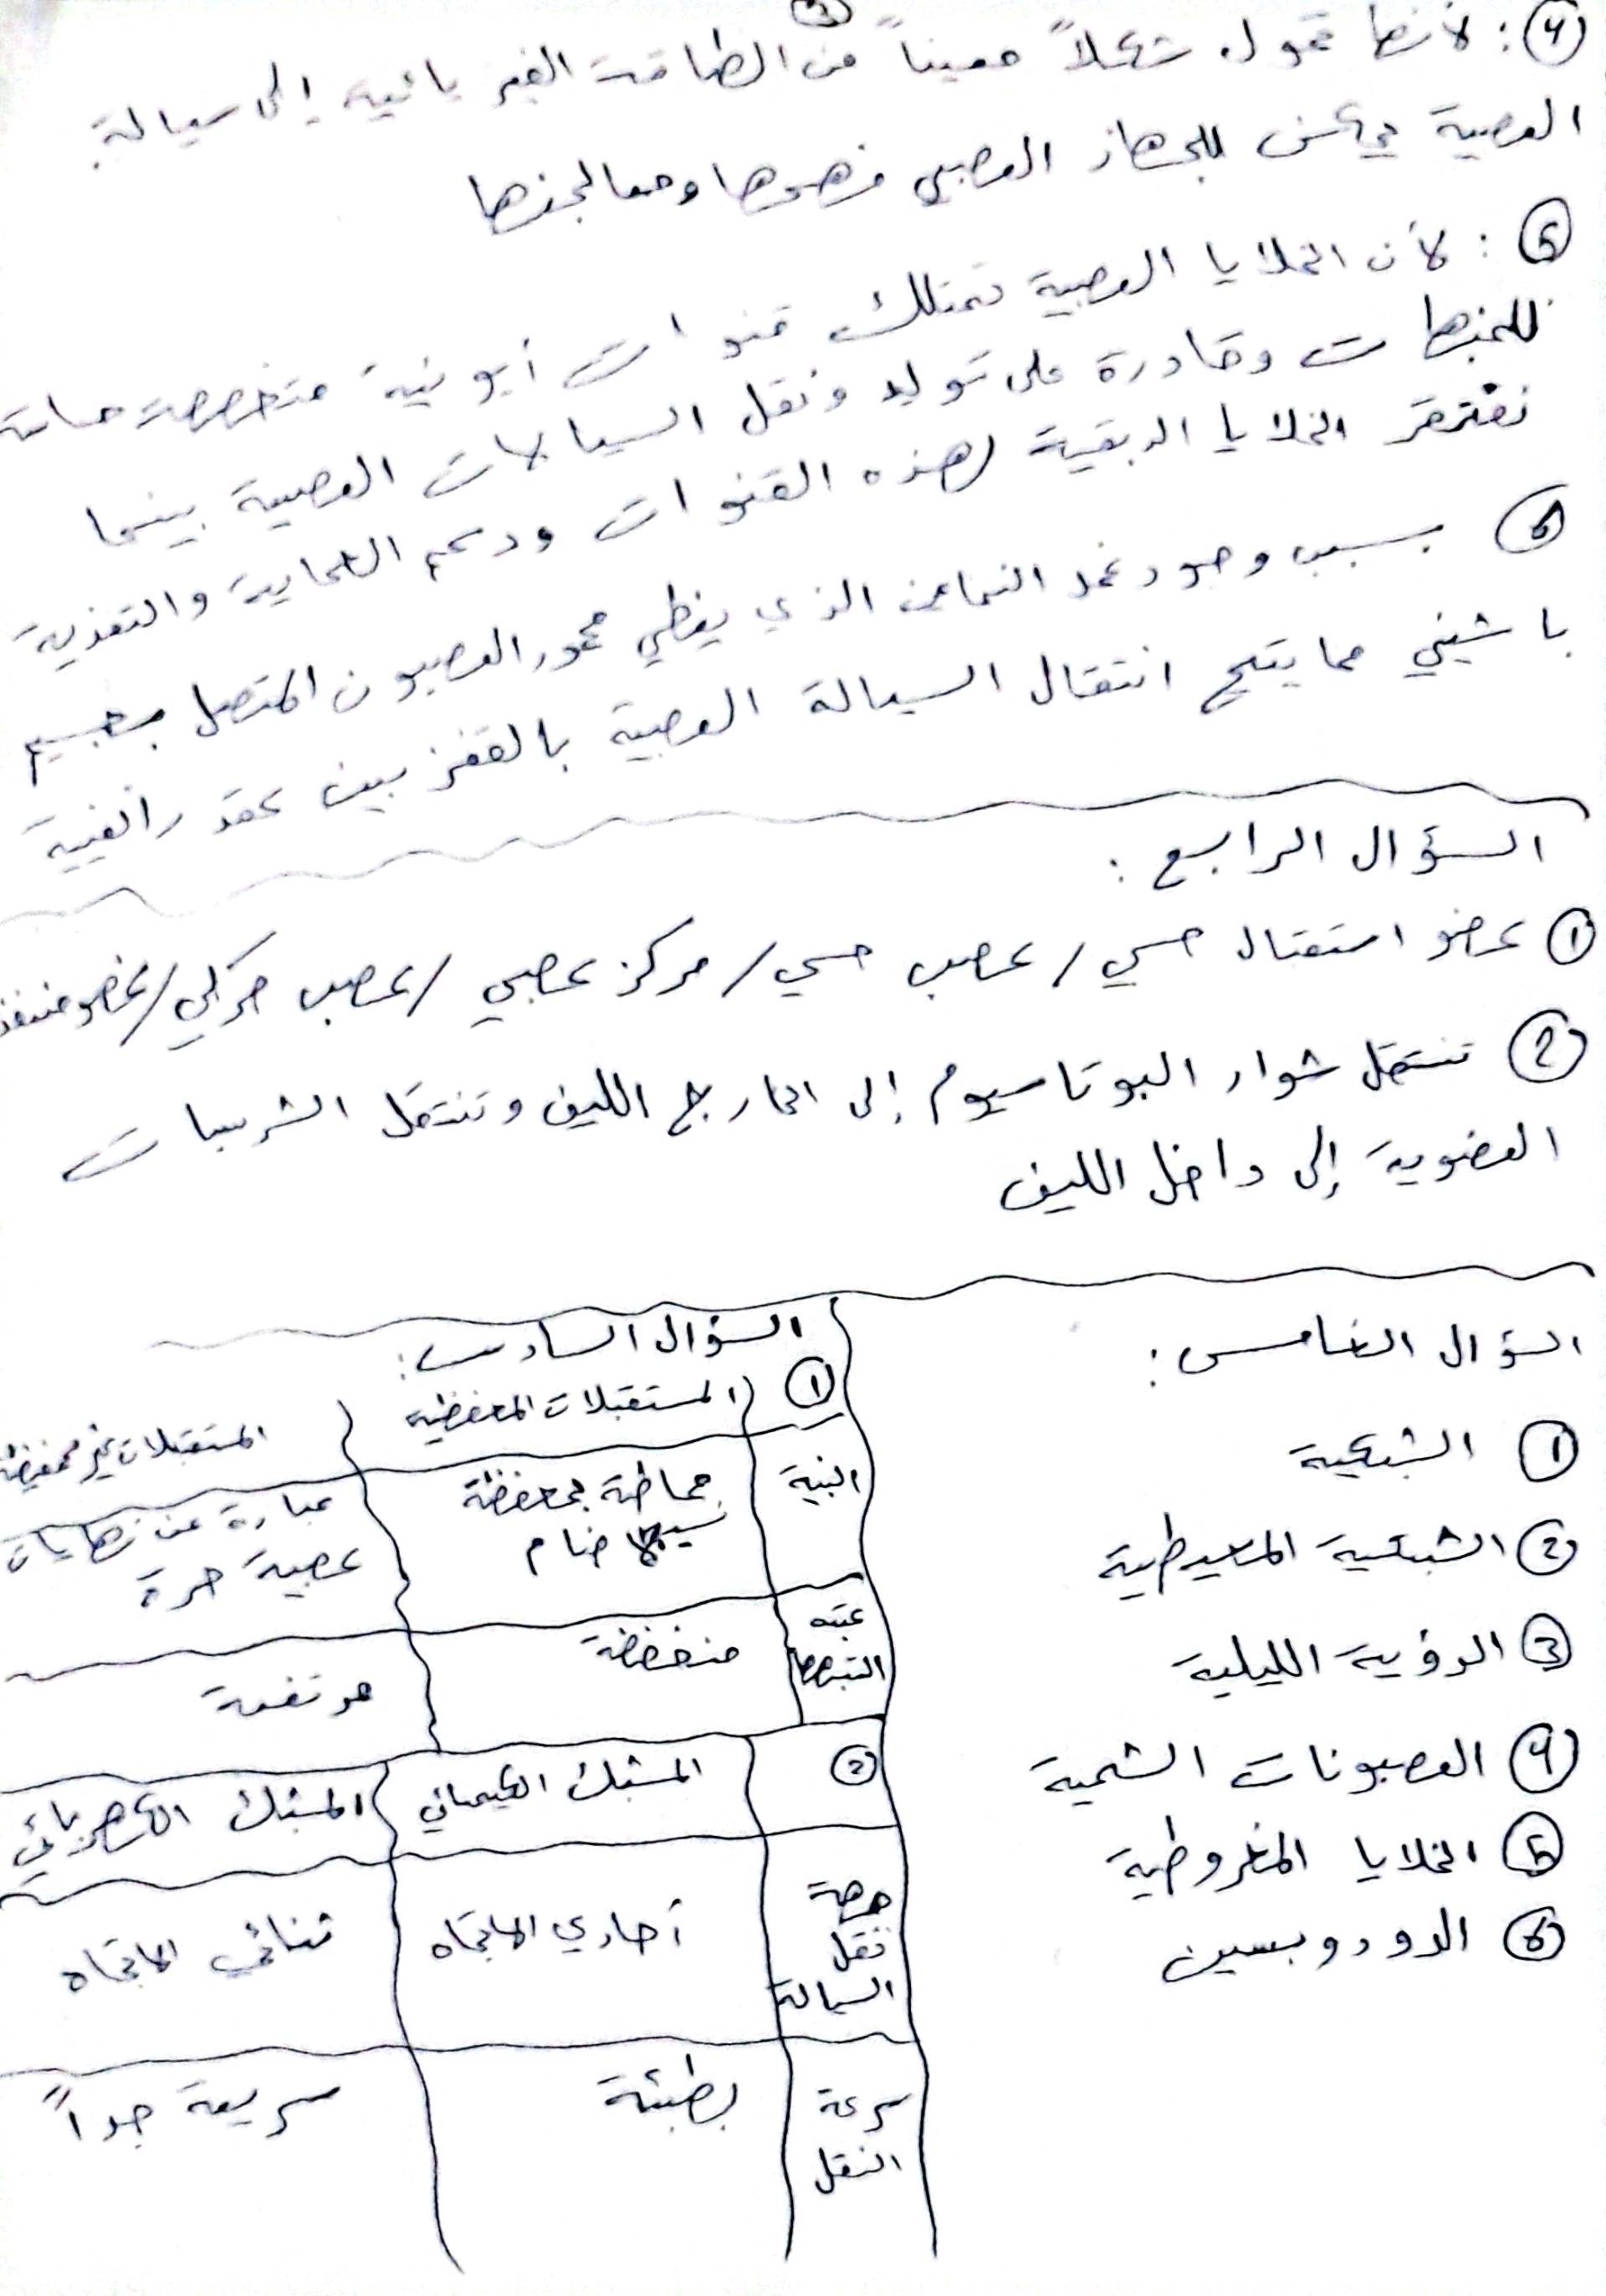 ④: لأنها تحول شكلاً معيناً من الطاقة الفيزيائية إلى سيالة
العصبية يمكن للجهاز العصبي فهمها ومعالجتها
⑤: لأن الخلايا العصبية تمتلك قنوات أيونية متخصصة حساسة
للمنبهات وقادرة على توليد ونقل السيالات العصبية بينما
تفتقر الخلايا الدبقية لهذه القنوات ودعم الحماية والتغذية
⑥ بسبب وجود غمد النخاعين الذي يغطي محور العصبون المتصل بجسيم
باشيني مما يتيح انتقال السيالة العصبية بالقفز بين عقد رانفييه
السؤال الرابع:
① عضو استقبال حسي / عصب حسي / مركز عصبي / عصب حركي / عضو منفذ
② تنتقل شوارد البوتاسيوم إلى الخارج الليف وتنتقل الشرسبات
العضوية إلى داخل الليف
السؤال الخامس:
① الشبكية
② الشبكية المحيطية
③ الرؤية الليلية
④ العصبونات الشمية
⑤ الخلايا المخروطية
⑥ الرودوبسين
السؤال السادس:
① المستقبلات المحفظية المستقبلات غير محفظية
البنية محاطة بمحفظة عبارة عن نهايات
ضام عصبية حرة
عتبة التنبيه منخفضة مرتفعة
② المشبك الكيميائي المشبك الكهربائي
جهة نقل السيالة أحادي الاتجاه ثنائي الاتجاه
سرعة النقل بطيئة سريعة جداً